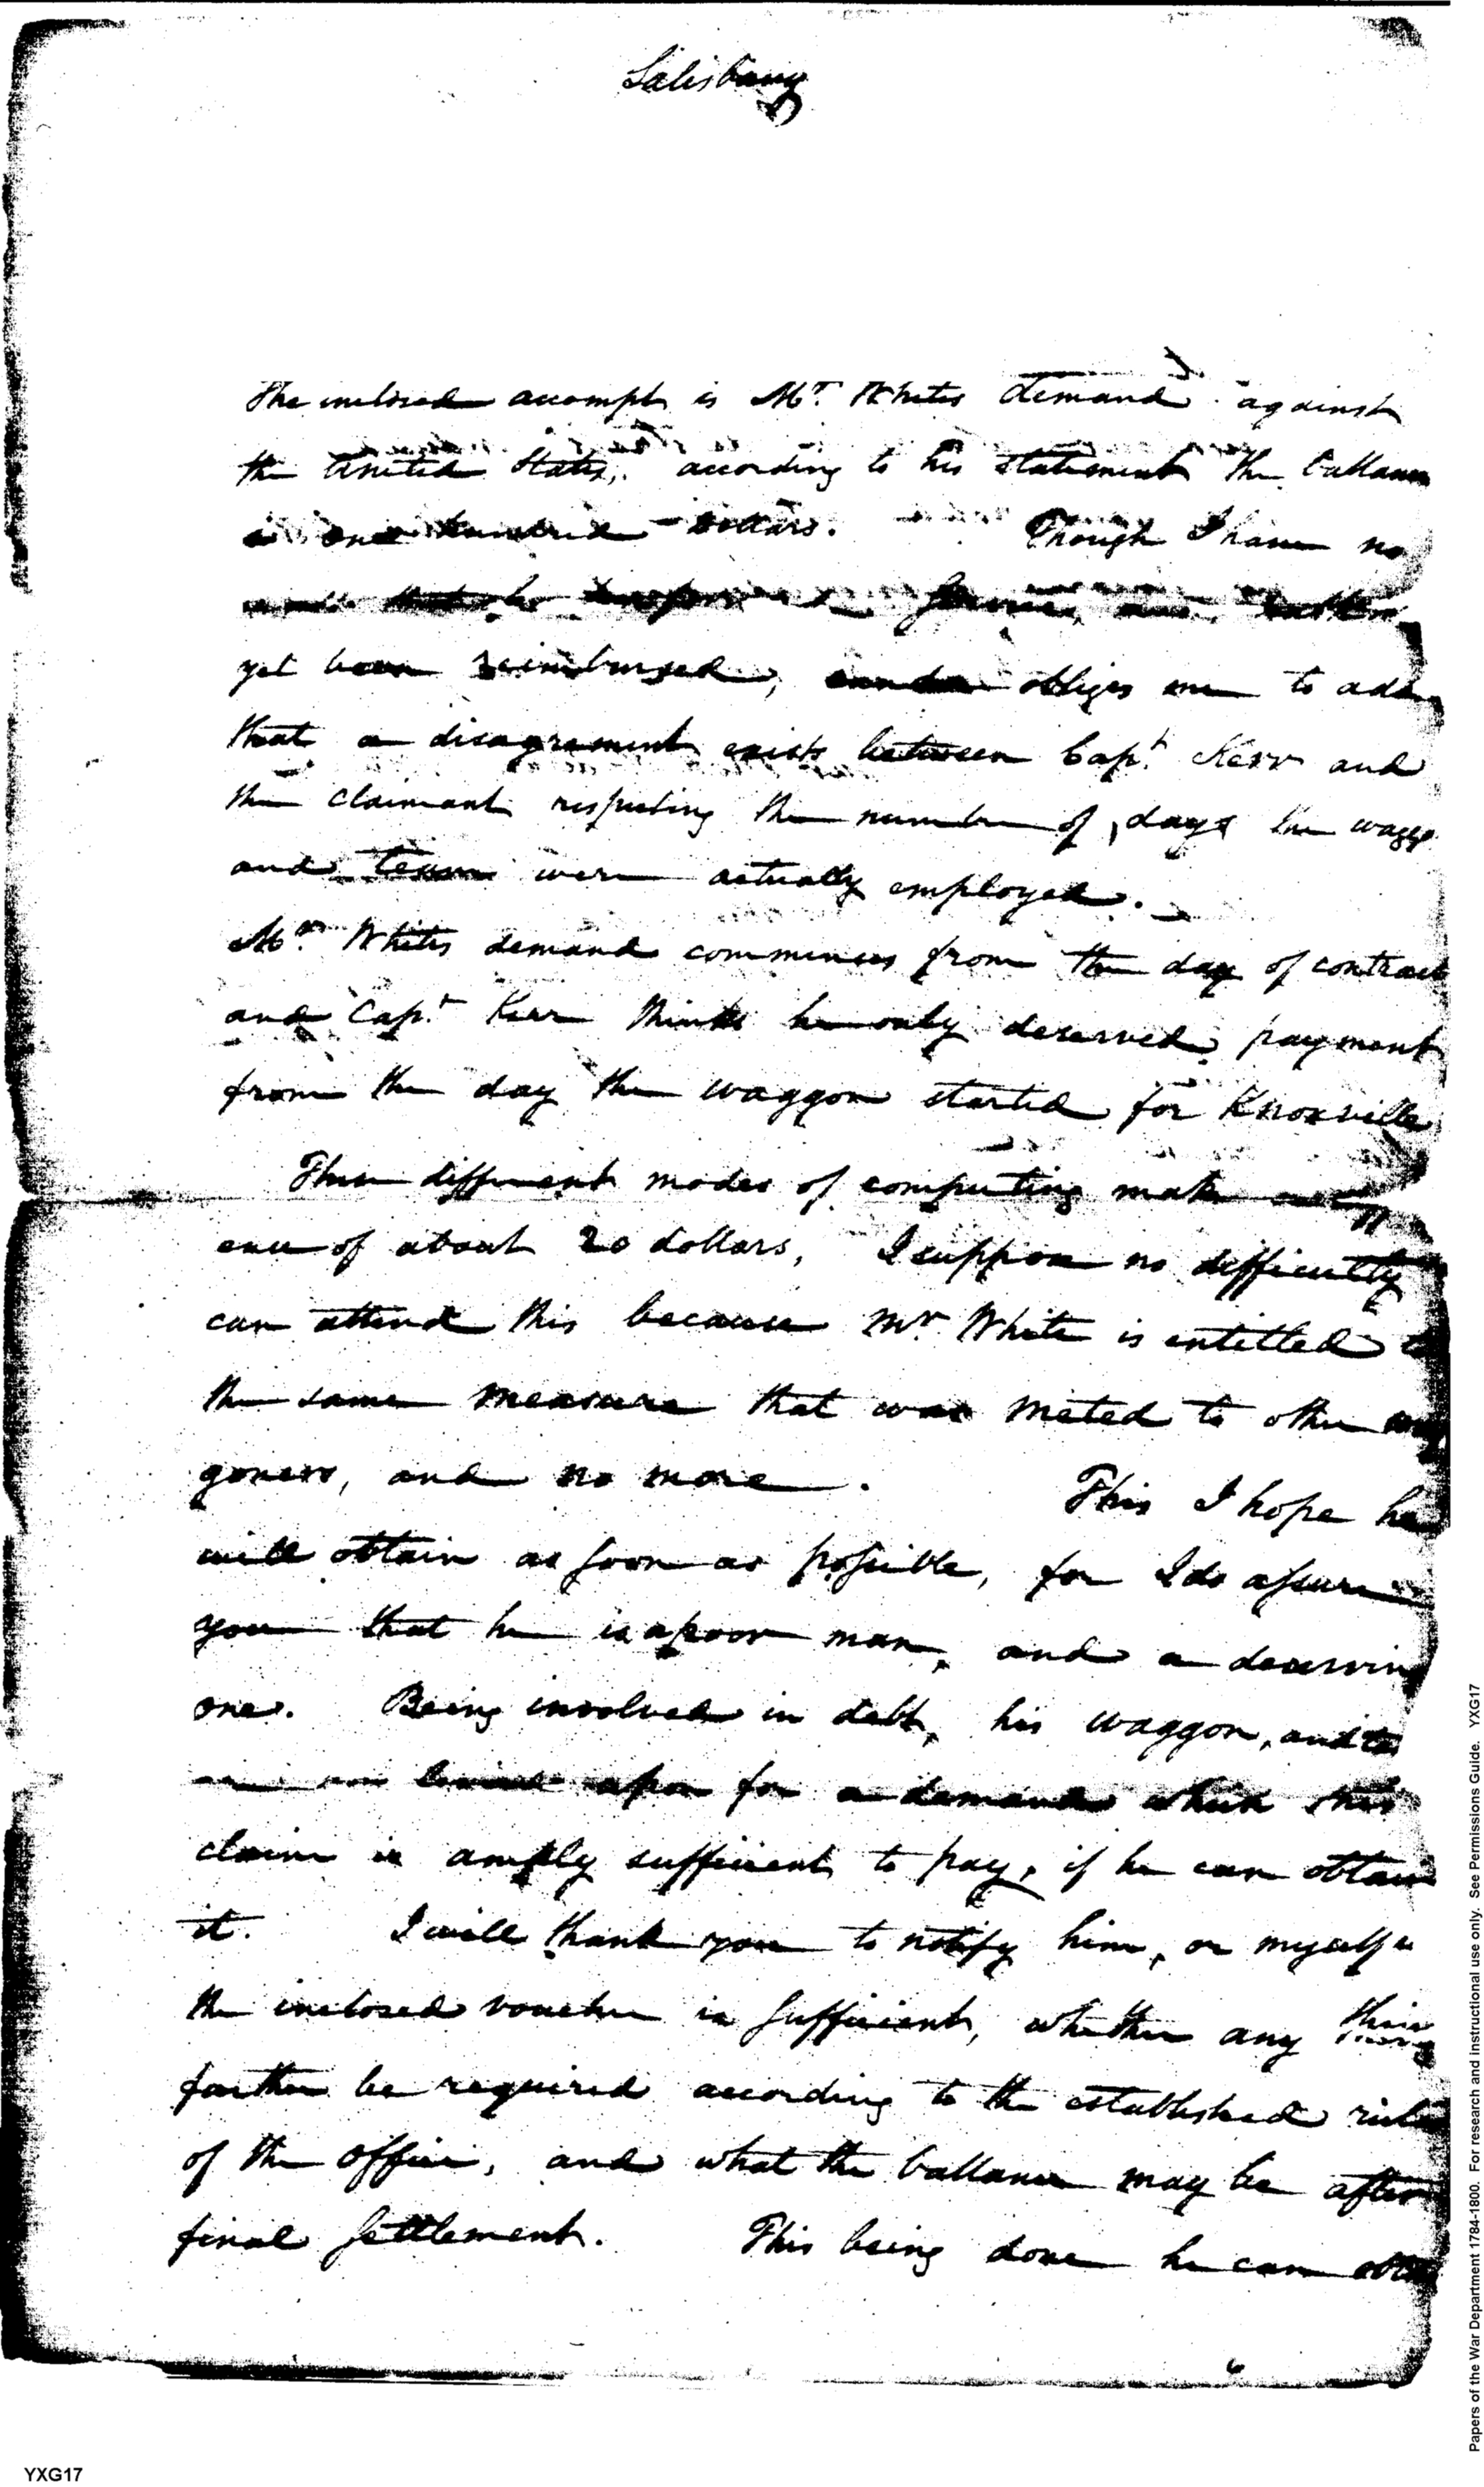 Salisbury
The inclosed accompt is Mr. Whites demand against
the United States, according to his statement the ballance
is one hundred Dollars. Though I have no
that he
yet been reimbursed, candor obliges me to add
that a disagreement exists between Capt. Kerr and
the claimant respecting the number of days the wagg
and team were actually employed.
Mr. Whites demand commences from the day of contract
and Capt. Kerr thinks he only deserved payment
from the day the waggon started for Knoxville
These different modes of computing make a
ence of about 20 dollars, I suppose no difficulty
can attend this because Mr White is entitled to
the same measure that was meted to other
goners, and no more. This I hope he
will obtain as soon as possible, for I do assure
you that he is a poor man, and a deserving
one. Being involved in debt, his waggon, and
upon for a demand which this
claim is amply sufficient to pay, if he can obtain
it. I will thank you to notify him, or myself
the inclosed voucher is sufficient, whether any thing
farther be required according to the established rules
of the office, and what the ballance may be after
final settlement. This being done he can
YXG17
Papers of the War Department 1784-1800. For research and instructional use only. See Permissions Guide. YXG17